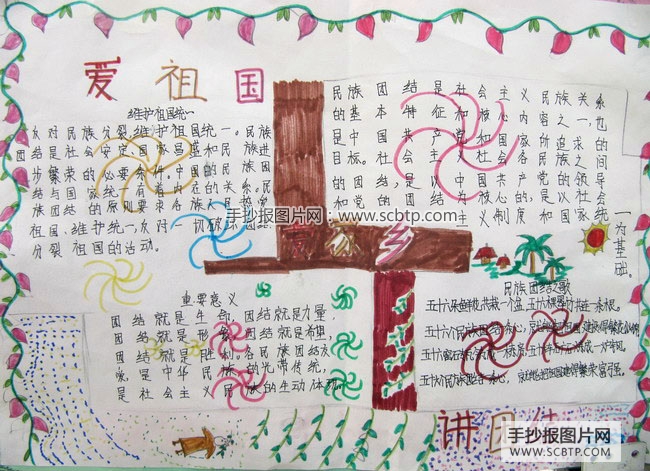 爱祖国
维护祖国统一
反对民族分裂,维护祖国统一。民族
团结是社会安定、国家昌盛和民族进
步繁荣的必要条件。中国的民族团
结与国家统一有着内在的关系。民
族团结的原则要求各族人民热爱
祖国,维护统一,反对一切破坏团结,
分裂祖国的活动。
民族团结是社会主义民族关系
的基本特征和核心内容之一,也
是中国共产党和国家所追求的
目标。社会主义社会各民族之间
的团结,是以中国共产党的领导
和党的团结为核心的,是以社会
主义制度和国家统
一为基础。
手抄报图片网:www.scbtp.com
重要意义
团结就是生命,团结就是力量,
团结就是形象,团结就是希望,
团结就是胜利。各民族团结友
爱是中华民族的光荣传统,
是社会主义民族的生动体现
民族团结之歌
五十六个民族
五十六个民族
讲团结
手抄报图片网
WWW.SCBTP.COM